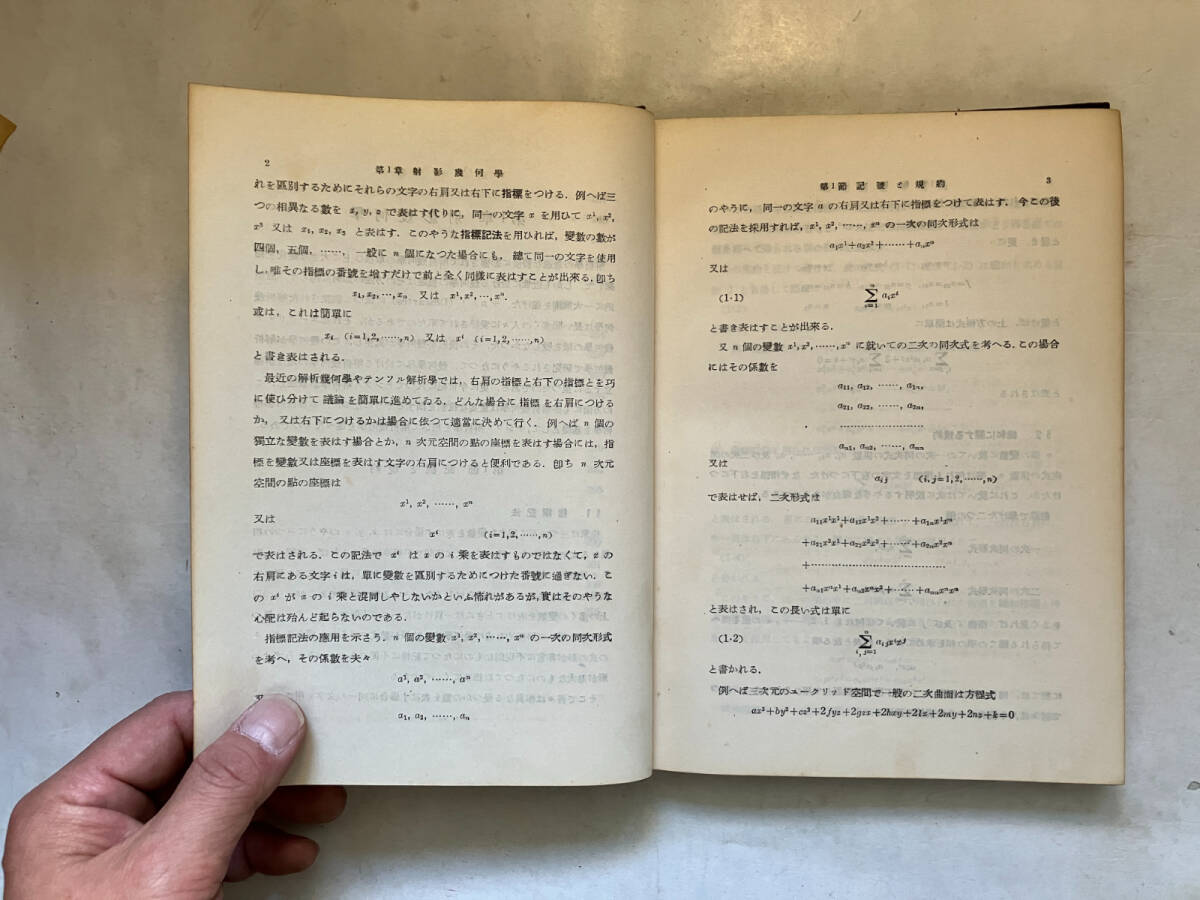 2
第1章 射影幾何學
れを區別するためにそれらの文字の右肩又は右下に指標をつける．例へば三
つの相異なる數を x, y, z で表はす代りに，同一の文字 x を用ひて x¹, x²,
x³ 又は x₁, x₂, x₃ と表はす．このやうな指標記法を用ひれば，變數の數が
四個，五個，……，一般に n 個になつた場合にも，總て同一の文字を使用
し，唯その指標の番號を增すだけで前と全く同樣に表はすことが出來る．卽ち
x₁, x₂, …, xₙ 又は x¹, x², …, xⁿ.
或は，これは簡單に
xᵢ (i=1,2,……,n) 又は xⁱ (i=1,2,……,n)
と書き表はされる．
最近の解析幾何學やテンソル解析學では，右肩の指標と右下の指標とを巧
に使ひ分けて議論を簡單に進めてゐる．どんな場合に指標を右肩につける
か，又は右下につけるかは場合に依つて適當に決めて行く．例へば n 個の
獨立な變數を表はす場合とか，n 次元空間の點の座標を表はす場合には，指
標を變數又は座標を表はす文字の右肩につけると便利である．卽ち n 次元
空間の點の座標は
x¹, x², ……, xⁿ
又は
xⁱ (i=1,2,……,n)
で表はされる．この記法で xⁱ は x の i 乘を表はすものではなくて，x の
右肩にある文字 i は，單に變數を區別するためにつけた番號に過ぎない．こ
の xⁱ が x の i 乘と混同しやしないかといふ怖れがあるが，實はそのやうな
心配は殆んど起らないのである．
指標記法の應用を示さう．n 個の變數 x¹, x², ……, xⁿ の一次の同次形式
を考へ，その係數を夫々
a¹, a², ……, aⁿ
又
a₁, a₂, ……, aₙ
第1節 記號と規約
3
のやうに，同一の文字 a の右肩又は右下に指標をつけて表はす．今この後
の記法を採用すれば，x¹, x², ……, xⁿ の一次の同次形式は
a₁x¹+a₂x²+……+aₙxⁿ
又は
(1·1) ∑ⁿᵢ₌₁ aᵢxⁱ
と書き表はすことが出來る．
又 n 個の變數 x¹, x², ……, xⁿ に就いての二次の同次式を考へる．この場合
にはその係數を
a₁₁, a₁₂, ……, a₁ₙ,
a₂₁, a₂₂, ……, a₂ₙ,
……………………
aₙ₁, aₙ₂, ……, aₙₙ
又は
aᵢⱼ (i, j=1, 2, ……, n)
で表はせば，二次形式は
a₁₁x¹x¹+a₁₂x¹x²+……+a₁ₙx¹xⁿ
+a₂₁x²x¹+a₂₂x²x²+……+a₂ₙx²xⁿ
+……………………………
+aₙ₁xⁿx¹+aₙ₂xⁿx²+……+aₙₙxⁿxⁿ
と表はされ，この長い式は單に
(1·2) ∑ⁿᵢ,ⱼ₌₁ aᵢⱼxⁱxʲ
と書かれる．
例へば三次元のユークリッド空間で一般の二次曲面は方程式
ax²+by²+cz²+2fyz+2gzx+2hxy+2lx+2my+2nz+k=0